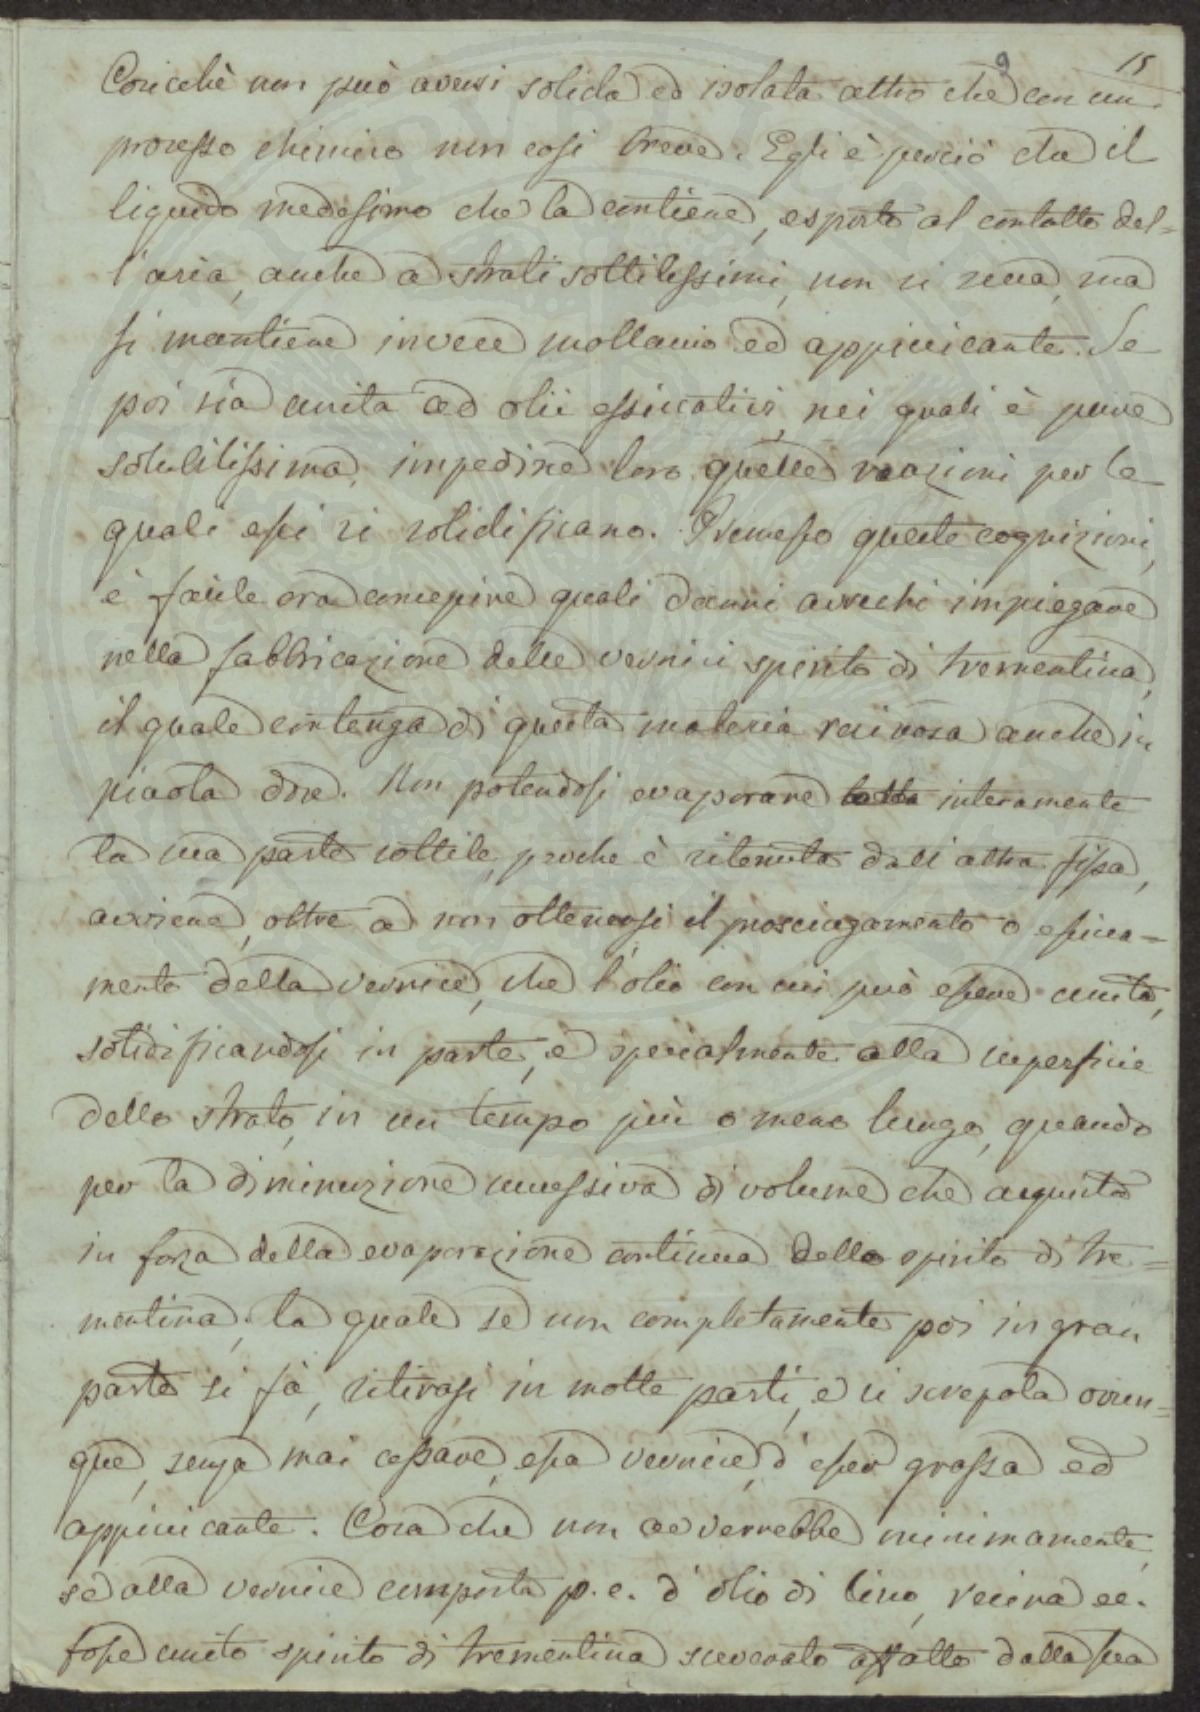 9 15
Cosicchè non può aversi solida ed isolata altro che con un
processo chimico non così breve. Egli è perciò che il
liquido medesimo che la contiene, esposto al contatto del=
l'aria, anche a strati sottilissimi, non si secca, ma
si mantiene invece mollaccio ed appiccicante. Se
poi sia unita ad olii essiccativi, nei quali è pure
solubilissima, impedisce loro quelle reazioni per le
quali essi si solidificano. Premesso queste cognizioni,
è facile ora concepire quali danni arrechi impiegare
nella fabbricazione delle vernici spirito di trementina,
il quale contenga di questa materia resinosa anche in
piccola dose. Non potendosi evaporare interamente
la sua parte sottile, perche è ritenuta dall'altra fissa,
avviene, oltre a non ottenersi il prosciugamento o essicca=
mento della vernice, che l'olio con cui può essere unita,
solidificandosi in parte, e specialmente alla superficie
dello strato, in un tempo più o meno lungo, quando
per la diminuzione successiva di volume che acquista
in forza della evaporazione continua dello spirito di tre=
mentina, la quale se non completamente poi in gran
parte si fà, ritirasi in molte parti, e si screpola ovun=
que, senza mai cessare, essa vernice, d'esser grassa ed
appiccicante. Cosa che non avverrebbe minimamente,
se alla vernice composta p. e. d'olio di lino, resina ec.
fosse unito spirito di trementina sceverato affatto dalla sua